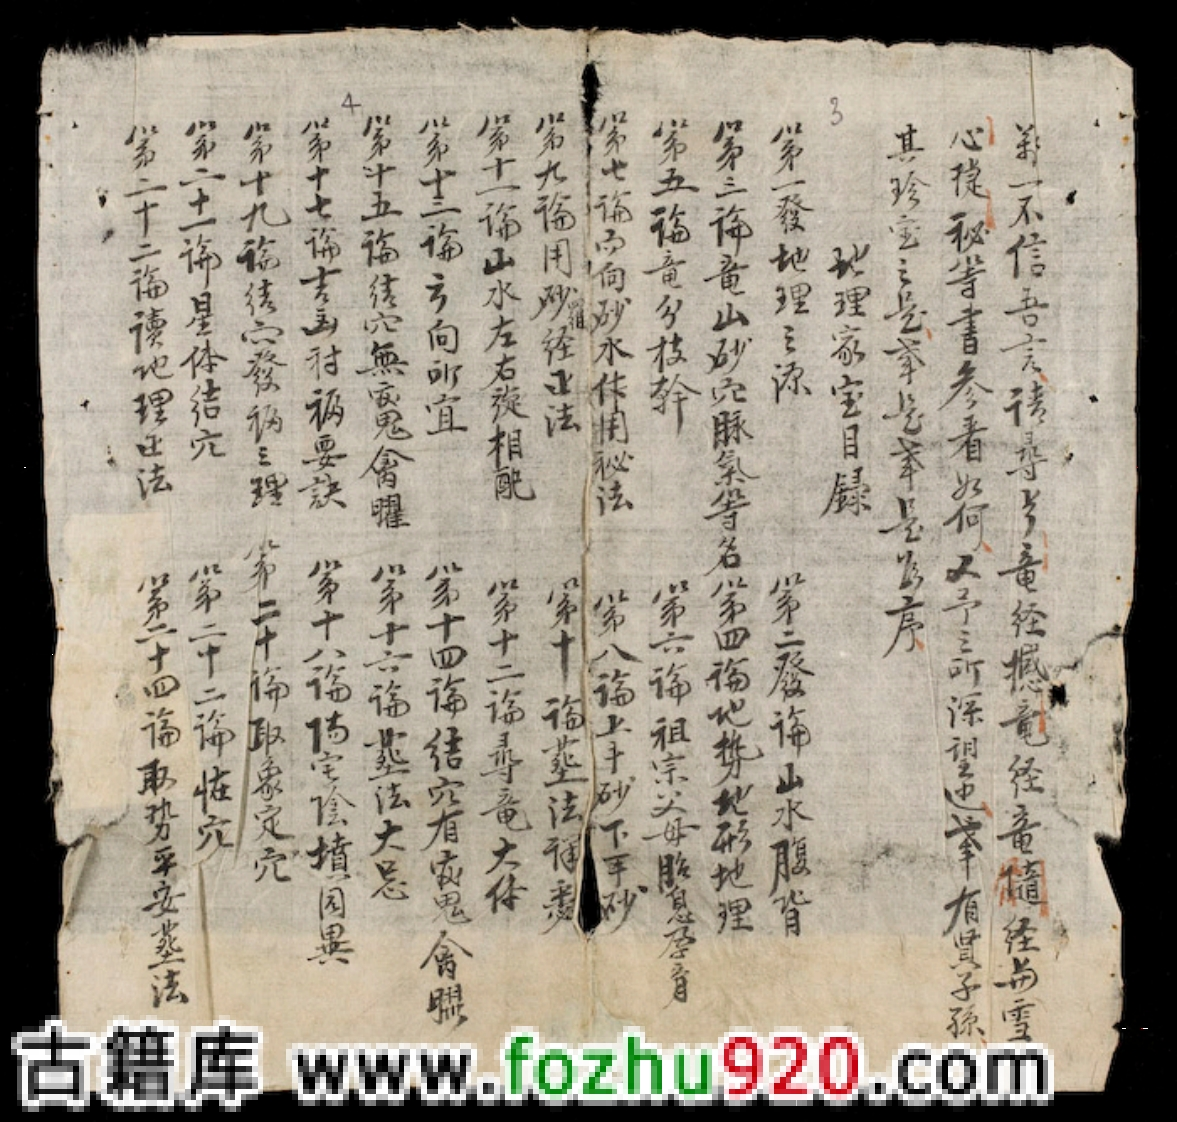 萬一不信吾言請尋步竜経撼竜経竜髓経與雪
心捷秘等書参看如何又予之所深望也筆有賢子孫
其珍宝之是筆是筆是為序
地理家宝目錄
第一發地理之源 第二發論山水腹背
第三論竜山砂穴脉氣等名 第四論地勢地形地理
第五論竜分枝幹 第六論祖宗父母胎息孕育
第七論向砂水作用秘法 第八論上手砂下手砂
第九論用砂羅経正法 第十論葬法
第十一論山水左右旋相配 第十二論尋竜大体
第十三論方向所宜 第十四論結穴有鬼禽曜
第十五論結穴無鬼禽曜 第十六論葬法大忌
第十七論吉凶禍要訣 第十八論陽宅陰墳同異
第十九論結穴發福之理 第二十論取象定穴
第二十一論星体結穴 第二十二論怪穴
第二十二論讀地理正法 第二十四論取勢平安葬法
3
4
古籍库 www.fozhu920.com